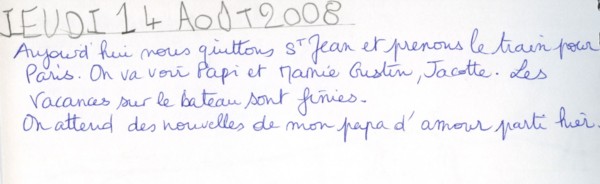 JEUDI 14 AOÛT 2008
Aujourd'hui nous quittons St Jean et prenons le train pour
Paris. On va voir Papi et Mamie Gustin, Jacotte. Les
vacances sur le bateau sont finies.
On attend des nouvelles de mon papa d'amour parti hier.